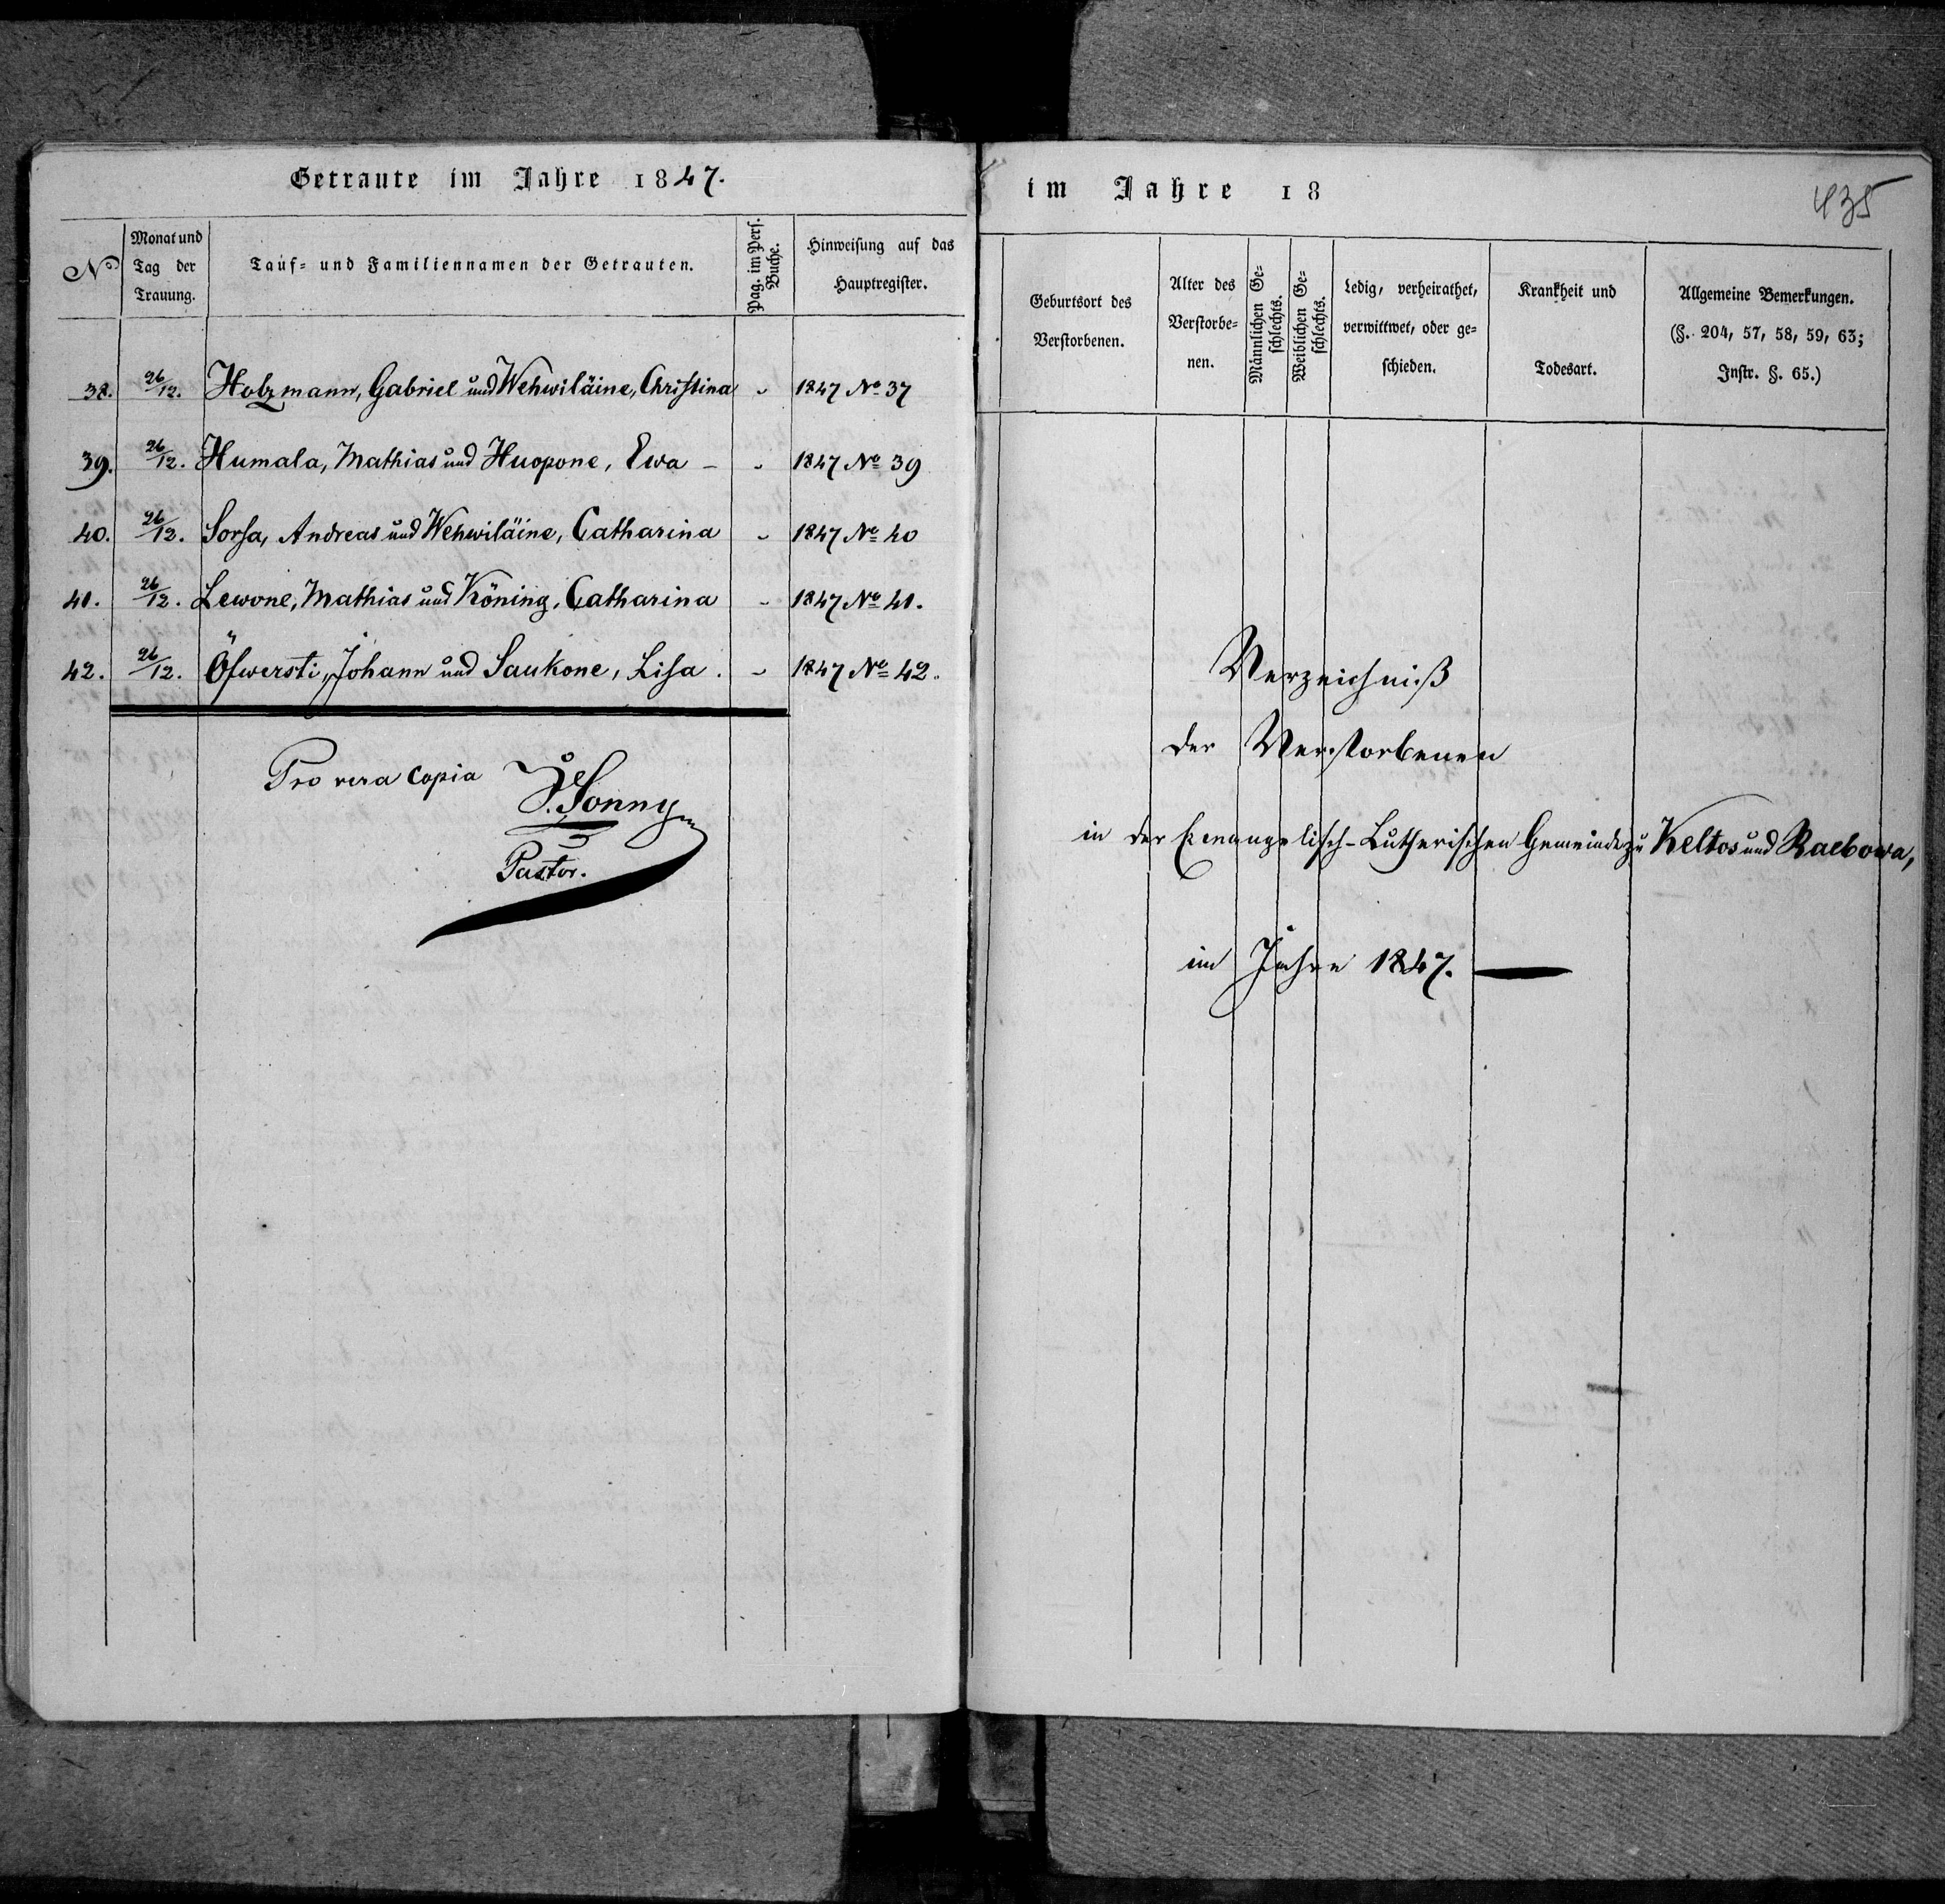 Getraute im Jahre 1847.
No
Monat und
Tag der
Trauung.
Tauf- und Familiennamen der Getrauten.
Pag. im Pers.
Buche.
Hinweisung auf das
Hauptregister.
38. 26/12. Holzmann, Gabriel und Wehwiläine, Christina " 1847 No 37
39. 26/12. Humala, Mathias und Huopone, Ewa - " 1847 No 39
40. 26/12. Sorsa, Andreas und Wehwiläine, Catharina " 1847 No 40
41. 26/12. Lewone, Mathias und Köning, Catharina " 1847 No 41.
42. 26/12. Öfwersti, Johann und Saukone, Lisa. " 1847 No 42.
Pro vera copia J. Sonny
Pastor.
im Jahre 18
435
Geburtsort des
Verstorbenen.
Alter des
Verstorbe-
nen.
Männlichen Ge-
schlechts.
Weiblichen Ge-
schlechts.
Ledig, verheirathet,
verwittwet, oder ge-
schieden.
Krankheit und
Todesart.
Allgemeine Bemerkungen.
(§. 204, 57, 58, 59, 63;
Instr. §. 65.)
Verzeichniß
der Verstorbenen
in der Evangelisch-Lutherischen Gemeinde zu Keltos und Raebowa,
im Jahre 1847.